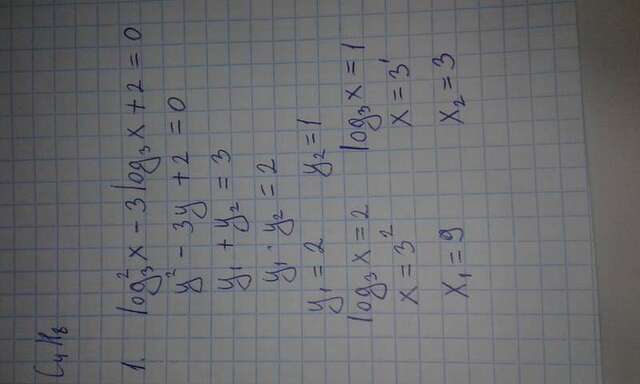 C₄H₈
1. log₃²x - 3log₃x + 2 = 0
y² - 3y + 2 = 0
y₁ + y₂ = 3
y₁ · y₂ = 2
y₁ = 2 y₂ = 1
log₃x = 2 log₃x = 1
x = 3² x = 3¹
x₁ = 9 x₂ = 3